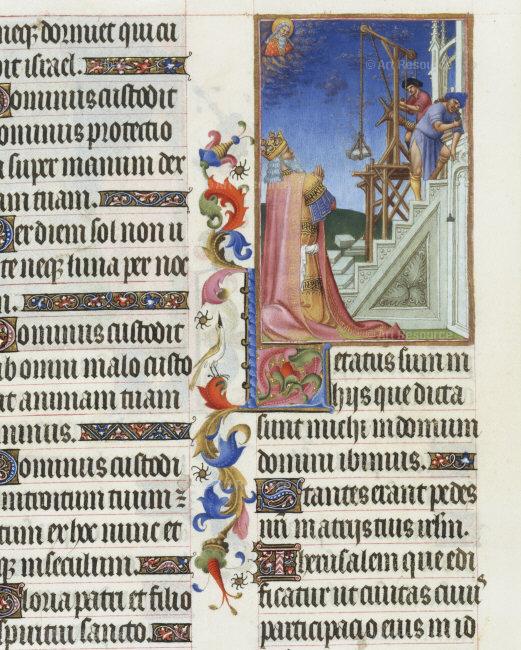 neq₃ dormiet qui cu
dit israel.
Dominus custodit
ominus protectio
a super manum dex
am tuam.
Per diem sol non u
te neq₃ luna per noc
m.
Dominus custodit
ab omni malo custo
at animam tuam
minus.
Dominus custodi
introitum tuum ⁊
tum ex hoc nunc et
q₃ in seculum.
Gloria patri et filio
spiritui sancto.
© Art Resource
Art Resource
Letatus sum in
hijs que dicta
sunt michi in domum
domini ibimus.
Stantes erant pedes
nri in atrijs tuis irlm.
Iherusalem que edi
ficatur ut ciuitas cuius
participacio eius in id